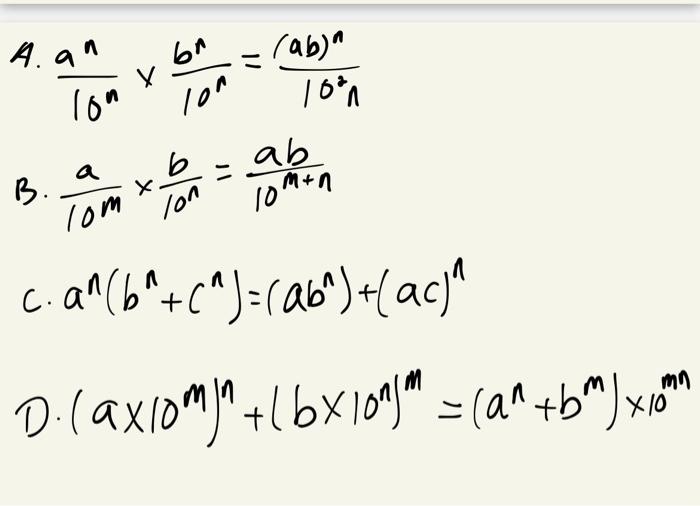 A. a^n/10^n × b^n/10^n = (ab)^n/10^2n
B. a/10^m × b/10^n = ab/10^m+n
C. a^n(b^n+c^n)=(ab^n)+(ac)^n
D. (a×10^m)^n+(b×10^n)^m =(a^n+b^m)×10^mn